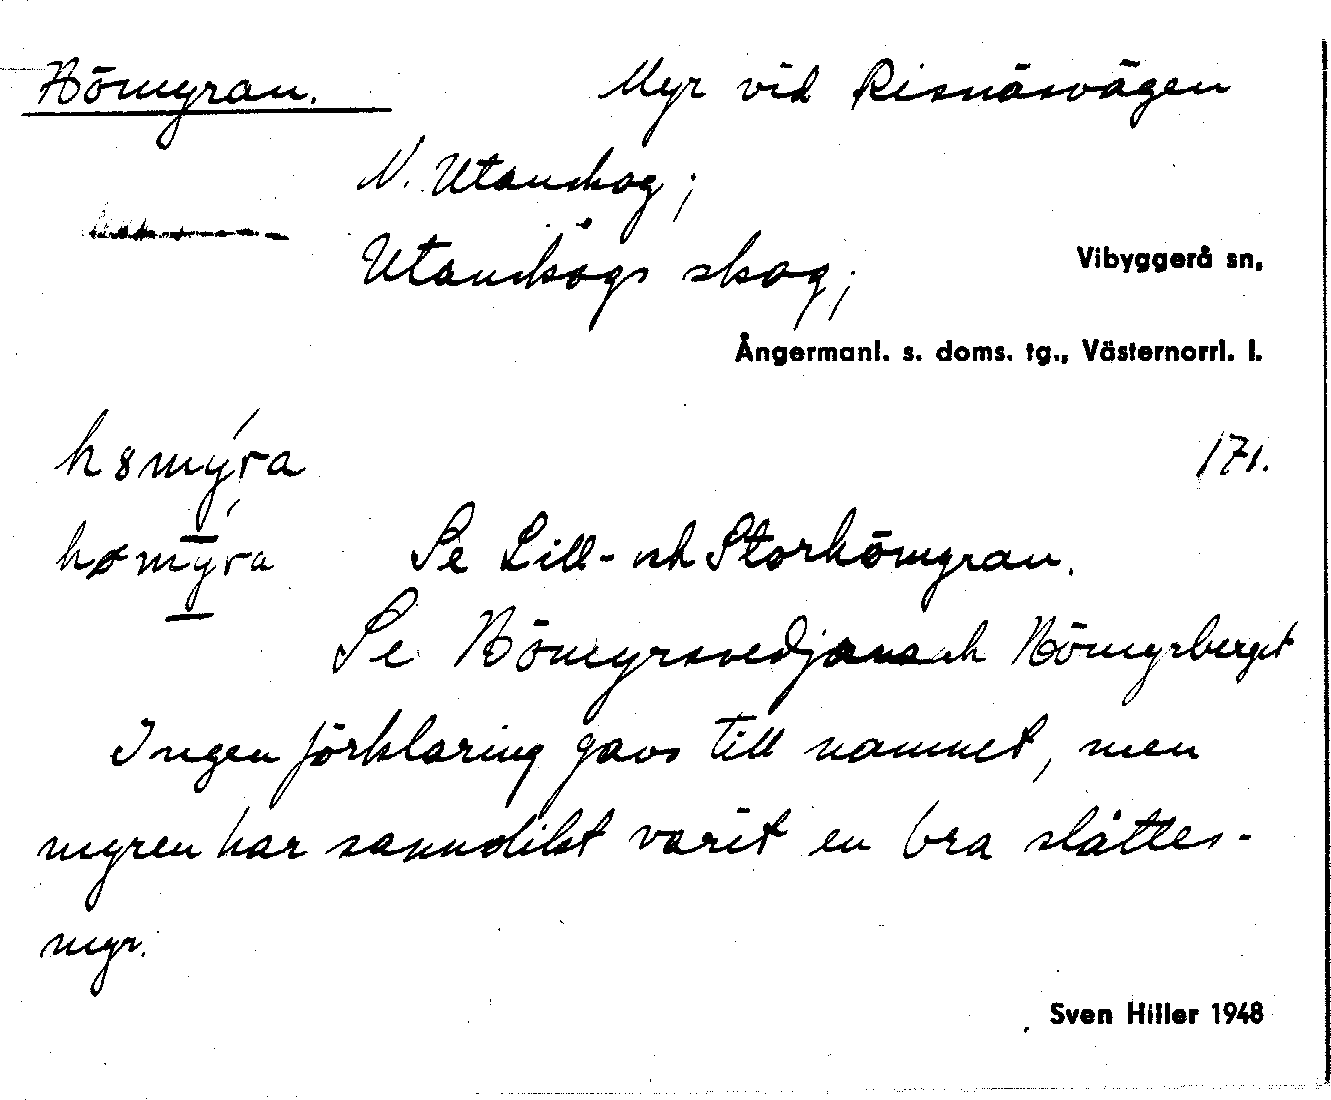 Hömyran. Myr vid Risnäsvägen
N. Utanskog;
Utanskogs skog;
Vibyggerå sn,
Ångermanl. s. doms. tg., Västernorrl. l.
171.
Se Lill- och Storhömyran.
Se Hömyrsvedjan och Hömyrberget
Ingen förklaring gavs till namnet, men
myren har sannolikt varit en bra slåttes-
myr.
Sven Hiller 1948